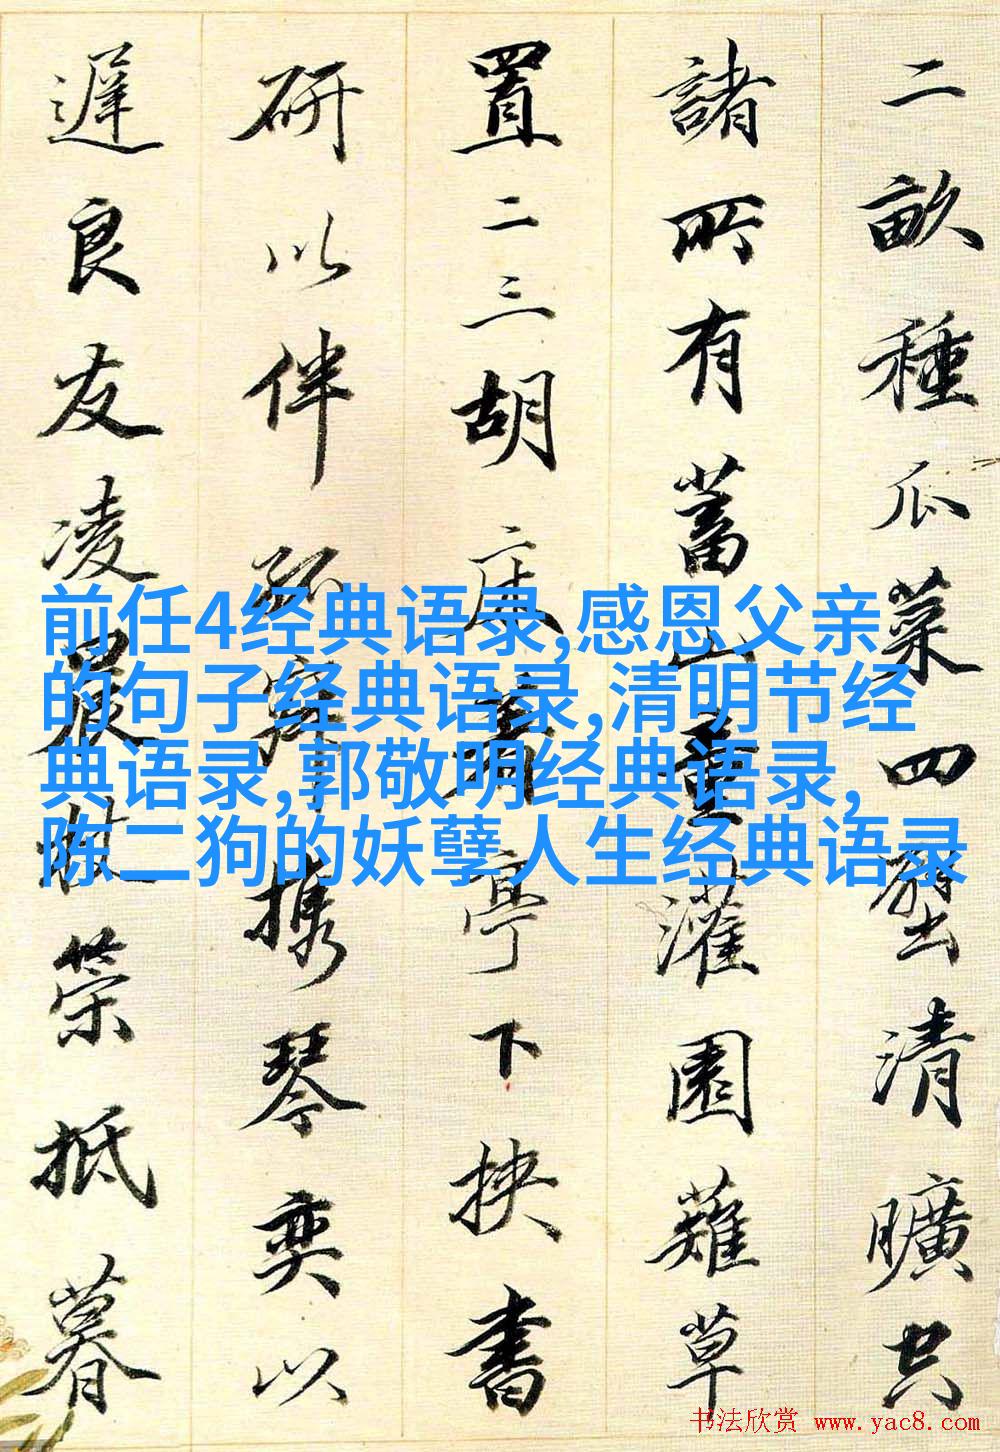 二畝種瓜菜四壁清曠空
諸所有蓄山童灌園薙草
置二三胡床著亭下挟書
研以伴孤寂携琴奕以
遲良友凌晨杖策抵暮
前任4经典语录,感恩父亲
的句子经典语录,清明节经
典语录,郭敬明经典语录,
陈二狗的妖孽人生经典语录
书法欣赏 www.yac8.com